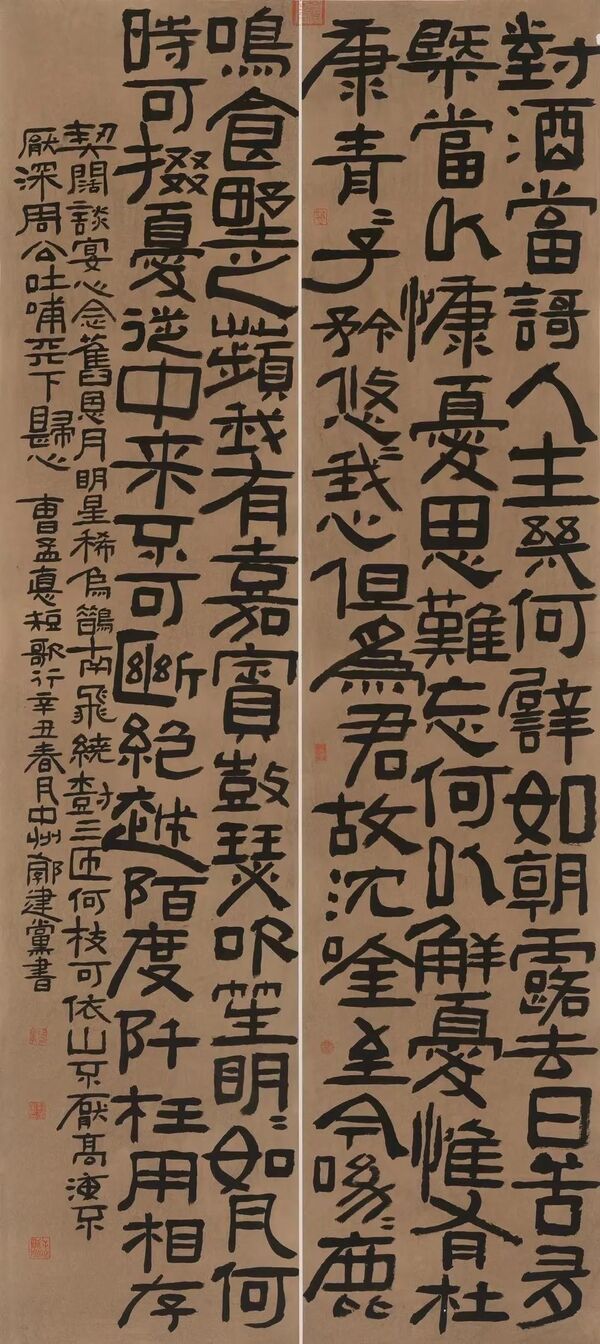 對酒當謌人生幾何譬如朝露去日苦多
槩當以慷憂思難忘何以解憂惟有杜
康青〻子矜悠〻我心但爲君故沈唫至今呦〻鹿
鳴食野之蘋我有嘉賓鼓瑟吹笙明〻如月何
時可掇憂從中来不可斷絕越陌度阡枉用相存
契闊談宴心念舊恩月明星稀烏鵲南飛繞樹三匝何枝可依山不厭高海不
厭深周公吐哺天下歸心 曹孟德短歌行辛丑春月中州郭建黨書